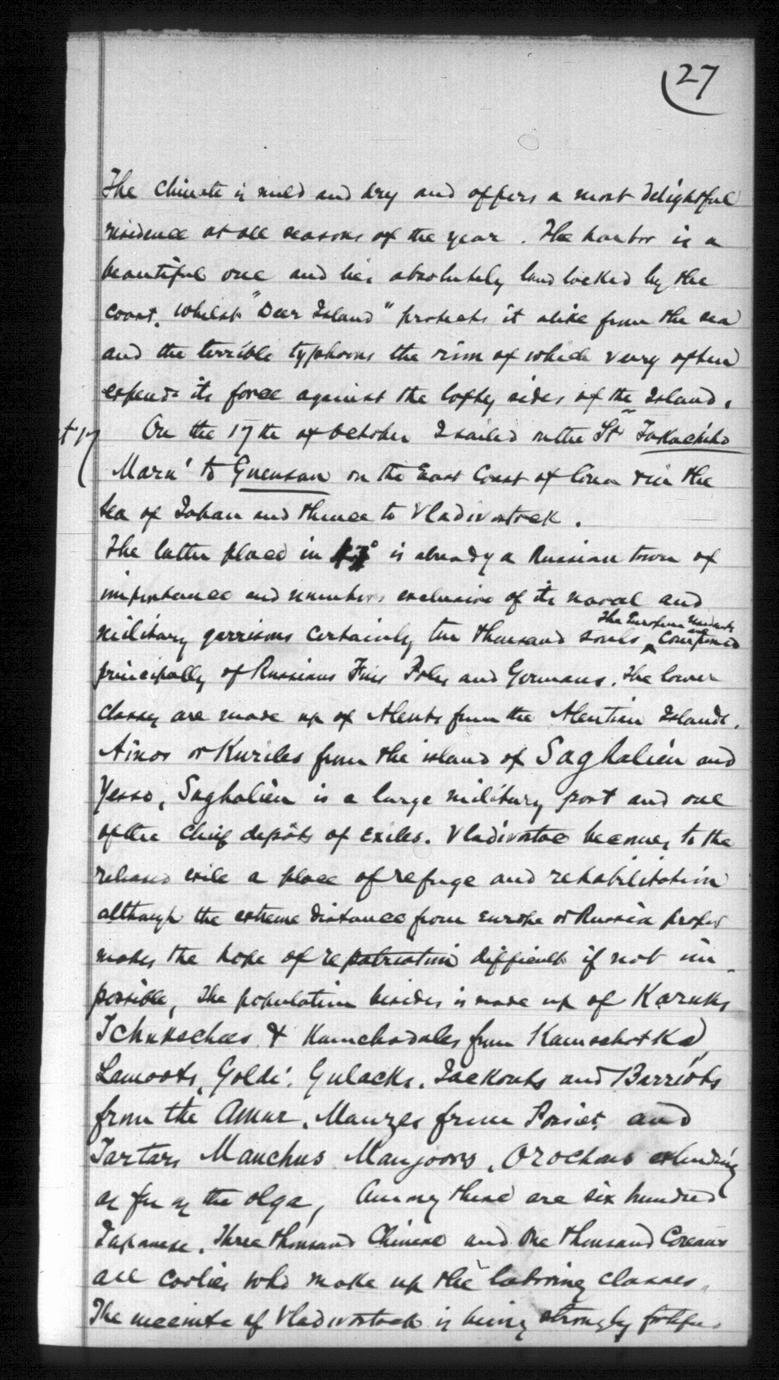 27
The climate is mild and dry and offers a most delightful
residence at all seasons of the year. The harbor is a
beautiful one and lies absolutely land locked by the
coast, whilst "Deer Island" protects it alike from the sea
and the terrible typhoons the rim of which very often
expends its force against the lofty sides of the Island.
t 17 On the 17th of October I sailed on the Str "Takachiho
Maru" to Guensan on the East Coast of Corea & in the
Sea of Japan and thence to Vladivostock.
The latter place in is already a Russian town of
importance and numbers exclusive of its naval and
military garrisons certainly ten thousand souls, The European residents composed
principally of Russians Fins Poles and Germans. The lower
classes are made up of Aleuts from the Aleutian Islands,
Ainos or Kuriles from the island of Saghalien and
Yesso, Saghalien is a large military post and one
of the chief depôts of exiles. Vladivostoc becomes to the
released exile a place of refuge and rehabilitation
although the extreme distance from Europe or Russia proper
makes the hope of repatriation difficult if not im-
possible, The population besides is made up of Karaks
Tchuksches & Kamchadales from Kamschatka,
Lamoots, Goldi, Gulacks, Jackouts and Barriots
from the Amur, Manzes from Possiet and
Tartars Manchus Mangoons, Orochons extending
as far as the Olga, Among these are six hundred
Japanese, Three thousand Chinese and One thousand Coreans
all coolies who make up the laboring classes.
The vicinity of Vladivostock is being strongly